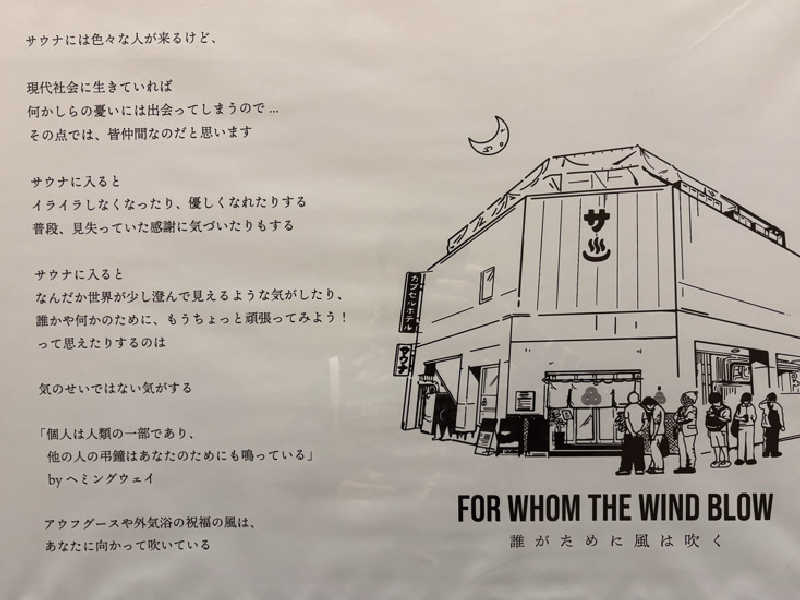 サウナには色々な人が来るけど、
現代社会に生きていれば
何かしらの憂いには出会ってしまうので...
その点では、皆仲間なのだと思います
サウナに入ると
イライラしなくなったり、優しくなれたりする
普段、見失っていた感謝に気づいたりもする
サウナに入ると
なんだか世界が少し澄んで見えるような気がしたり、
誰かや何かのために、もうちょっと頑張ってみよう！
って思えたりするのは
気のせいではない気がする
「個人は人類の一部であり、
他の人の弔鐘はあなたのためにも鳴っている」
by ヘミングウェイ
アウフグースや外気浴の祝福の風は、
あなたに向かって吹いている
サ
カプセルホテル
サウナ
FOR WHOM THE WIND BLOW
誰がために風は吹く